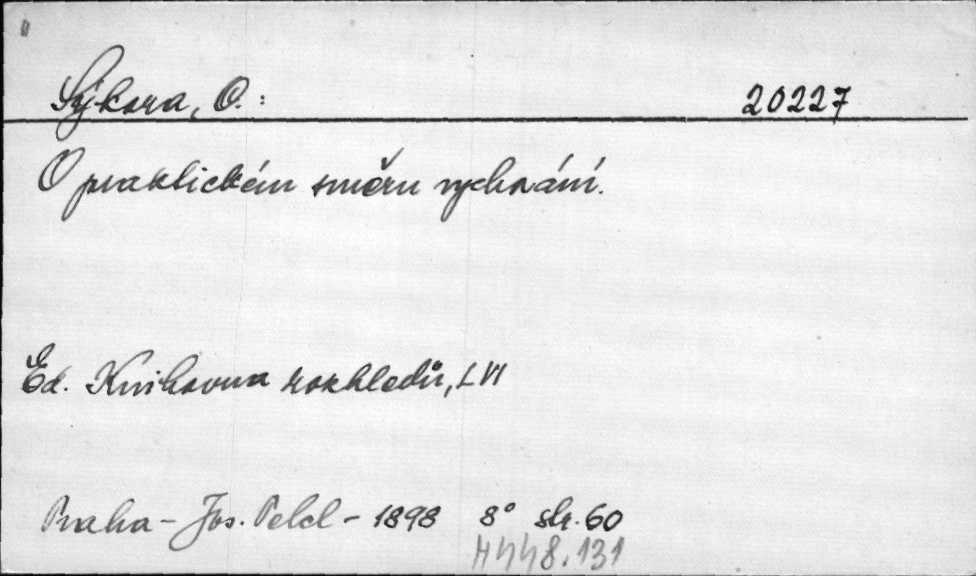 Sýkora, O.: 20227
O praktickém směru vychování.
Ed. Knihovna rozhledů, LVI
Praha - Jos. Pelcl - 1898 8° str. 60
H448.131